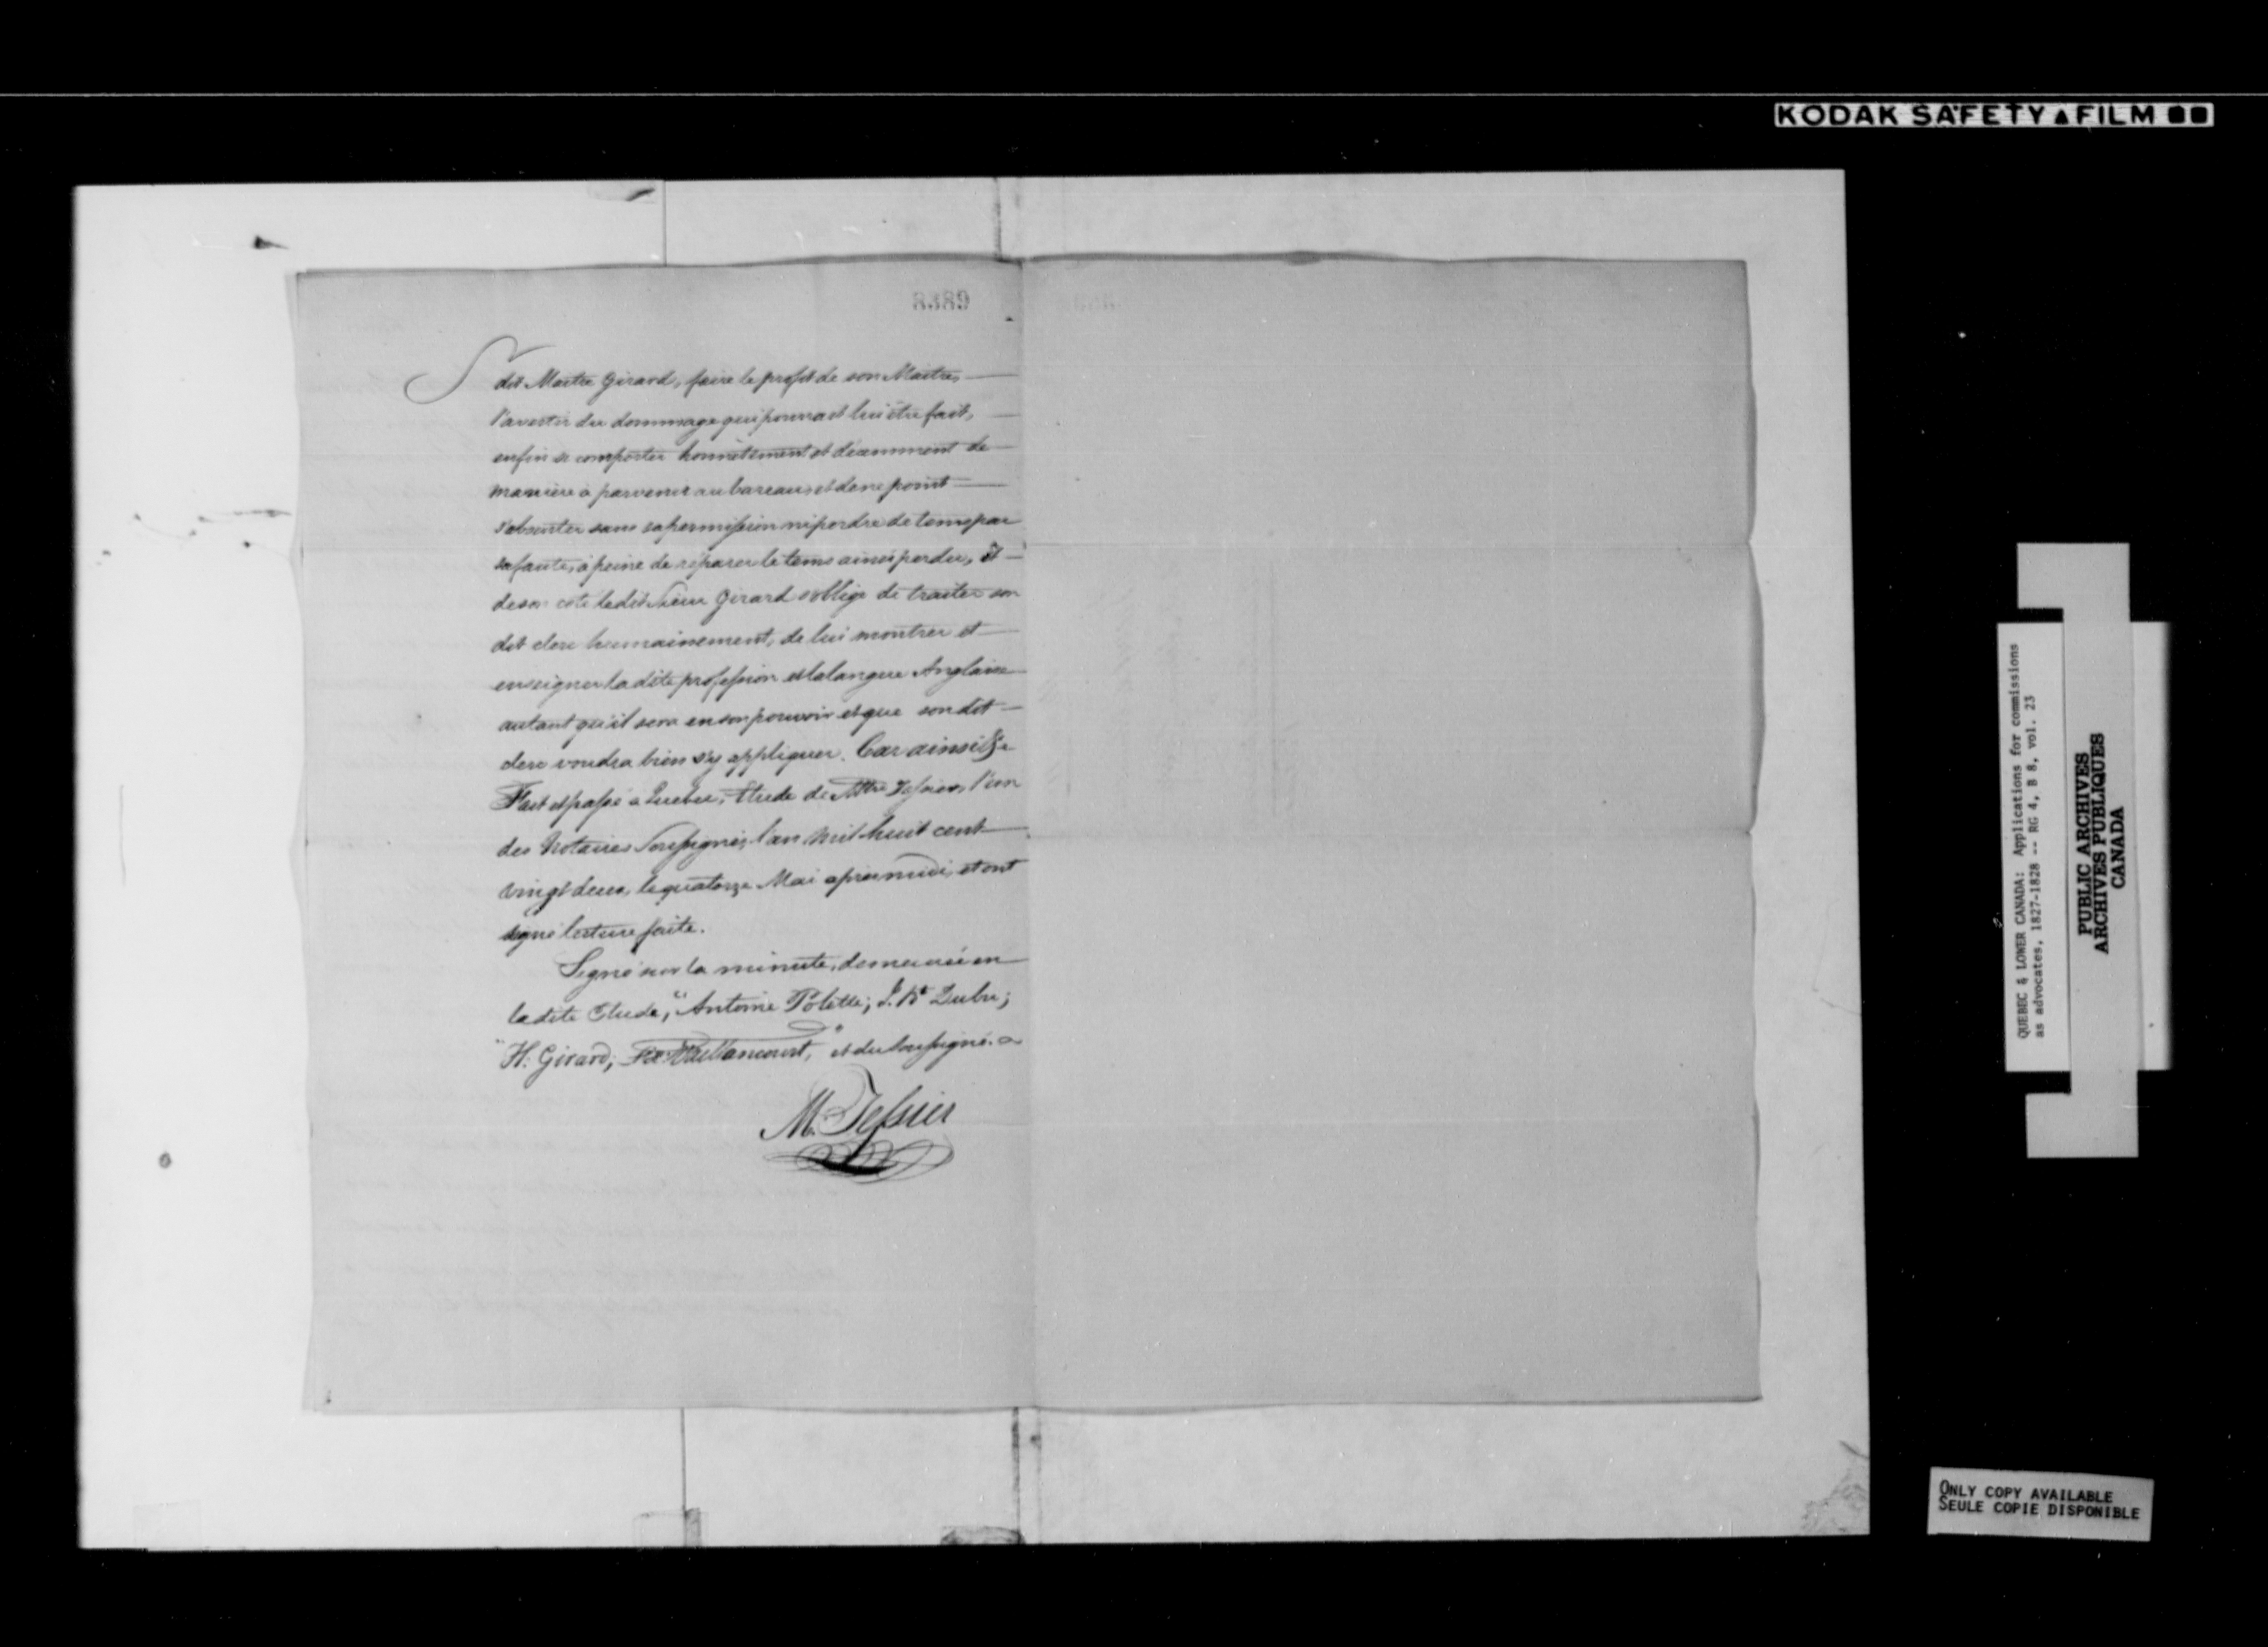 KODAK SAFETY ▲ FILM
8389
dit Maitre Girard, faire le profit de son Maitre,
l'avertir du dommage qui pourrait lui être fait,
enfin se comporter honnêtement et décemment de
maniere à parvenir au bareau, et de ne point
s'absenter sans sa permission ni perdre de tems par
sa faute, à peine de réparer le tems ainsi perdu, Et
de son coté le dit Sieur Girard s'oblige de traiter son
dit clerc humainement, de lui montrer et
enseigner la dite profession et la langue Anglaise
autant qu'il sera en son pouvoir et que son dit
clerc voudra bien s'y appliquer. Car ainsi &c
Fait et passé à Quebec, Etude de Mtre Tessier, l'un
des Notaires Soussignés, l'an mil huit cent
vingt deux, le quatorze Mai après midi, et ont
signé lecture faite.
Signé sur la minute, demeurée en
la dite Etude, "Antoine Polette; J. Bt
"H: Girard; Vaillancourt," et du Soussigné.
M. Tessier
QUEBEC & LOWER CANADA: Applications for commissions
as advocates, 1827-1828 -- RG 4, B 8, vol. 23
PUBLIC ARCHIVES
ARCHIVES PUBLIQUES
CANADA
ONLY COPY AVAILABLE
SEULE COPIE DISPONIBLE